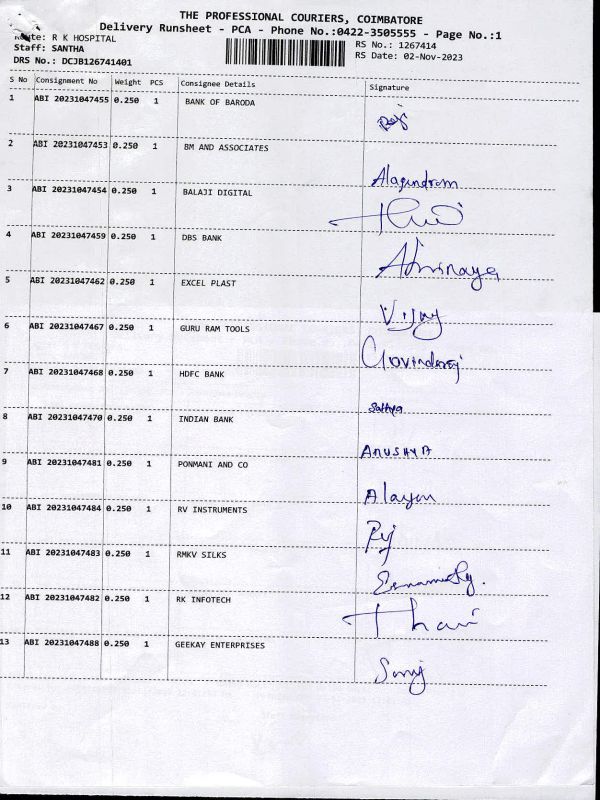 THE PROFESSIONAL COURIERS, COIMBATORE
Delivery Runsheet - PCA - Phone No.:0422-3505555 - Page No.:1
Route: R K HOSPITAL RS No.: 1267414
Staff: SANTHA RS Date: 02-Nov-2023
DRS No.: DCJB126741401
S No Consignment No Weight PCS Consignee Details Signature
1 ABI 20231047455 0.250 1 BANK OF BARODA
2 ABI 20231047453 0.250 1 BM AND ASSOCIATES
3 ABI 20231047454 0.250 1 BALAJI DIGITAL
4 ABI 20231047459 0.250 1 DBS BANK Abhinaya
5 ABI 20231047462 0.250 1 EXCEL PLAST Vijay
6 ABI 20231047467 0.250 1 GURU RAM TOOLS Govindaraj
7 ABI 20231047468 0.250 1 HDFC BANK Sathya
8 ABI 20231047470 0.250 1 INDIAN BANK ANUSHYA
9 ABI 20231047481 0.250 1 PONMANI AND CO
10 ABI 20231047484 0.250 1 RV INSTRUMENTS
11 ABI 20231047483 0.250 1 RMKV SILKS
12 ABI 20231047482 0.250 1 RK INFOTECH
13 ABI 20231047488 0.250 1 GEEKAY ENTERPRISES